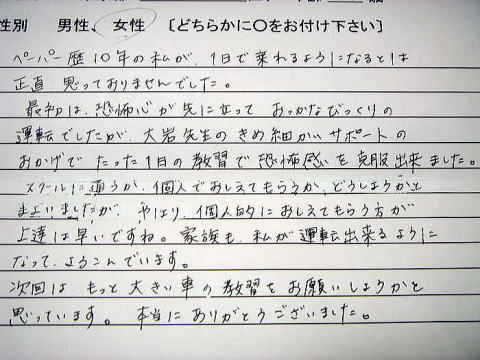 性別　男性、女性　〔どちらかに〇をお付け下さい〕
ペーパー歴10年の私が、1日で乗れるようになるとは
正直 思っておりませんでした。
最初は、恐怖心が先に立って おっかなびっくりの
運転でしたが、大岩先生のきめ細かいサポートの
おかげで たった1日の教習で恐怖感を克服出来ました。
スクールに通うか、個人でおしえてもらうか、どうしようかと
まよいましたが、やはり、個人的におしえてもらう方が
上達は早いですね。家族も、私が運転出来るように
なって、よろこんでいます。
次回は、もっと大きい車の教習をお願いしようかと
思っています。本当にありがとうございました。